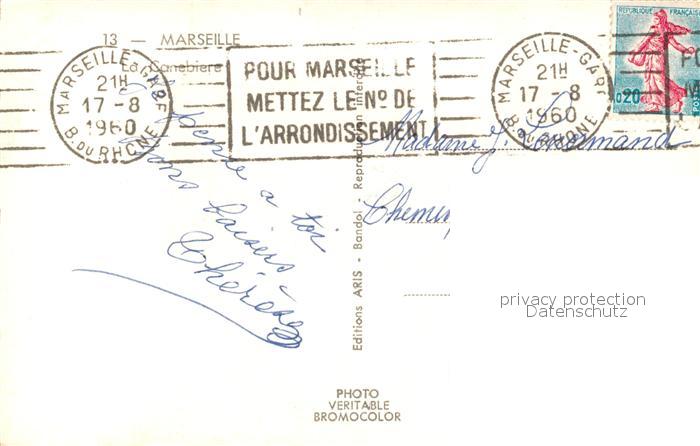 13 — MARSEILLE
La Canebière
MARSEILLE-GARE
21H
17-8
1960
B. DU RHONE
POUR MARSEILLE
METTEZ LE Nº DE
L'ARRONDISSEMENT
MARSEILLE-GARE
21H
17-8
1960
B. DU RHONE
REPUBLIQUE FRANÇAISE
0,20
Je pense a toi
Bons baisers
Thérèse
Editions ARIS - Bandol - Reproduction interdite
Madame J. Lenormand
Chemin
privacy protection
Datenschutz
PHOTO
VERITABLE
BROMOCOLOR